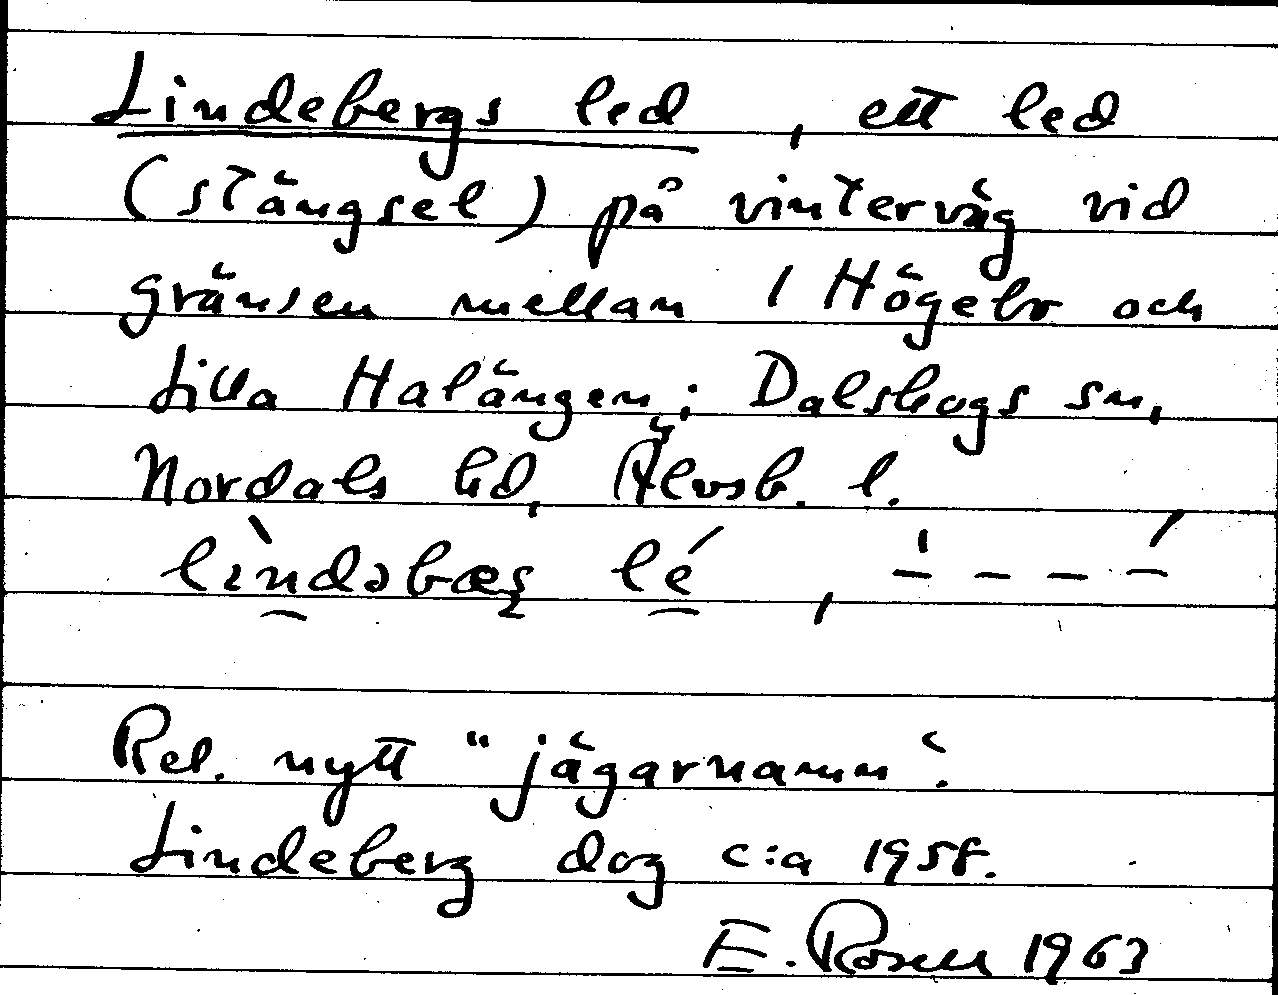 Lindebergs led, ett led
(stängsel) på vinterväg vid
gränsen mellan 1 Högebo och
Lilla Halängen; Dalskogs sn,
Nordals hd, Älvsb. l.
lìndəbæꞔ lé, '– – – –́
Rel. nytt "jägarnamn".
Lindeberg dog c:a 1958.
E. Rosell 1963